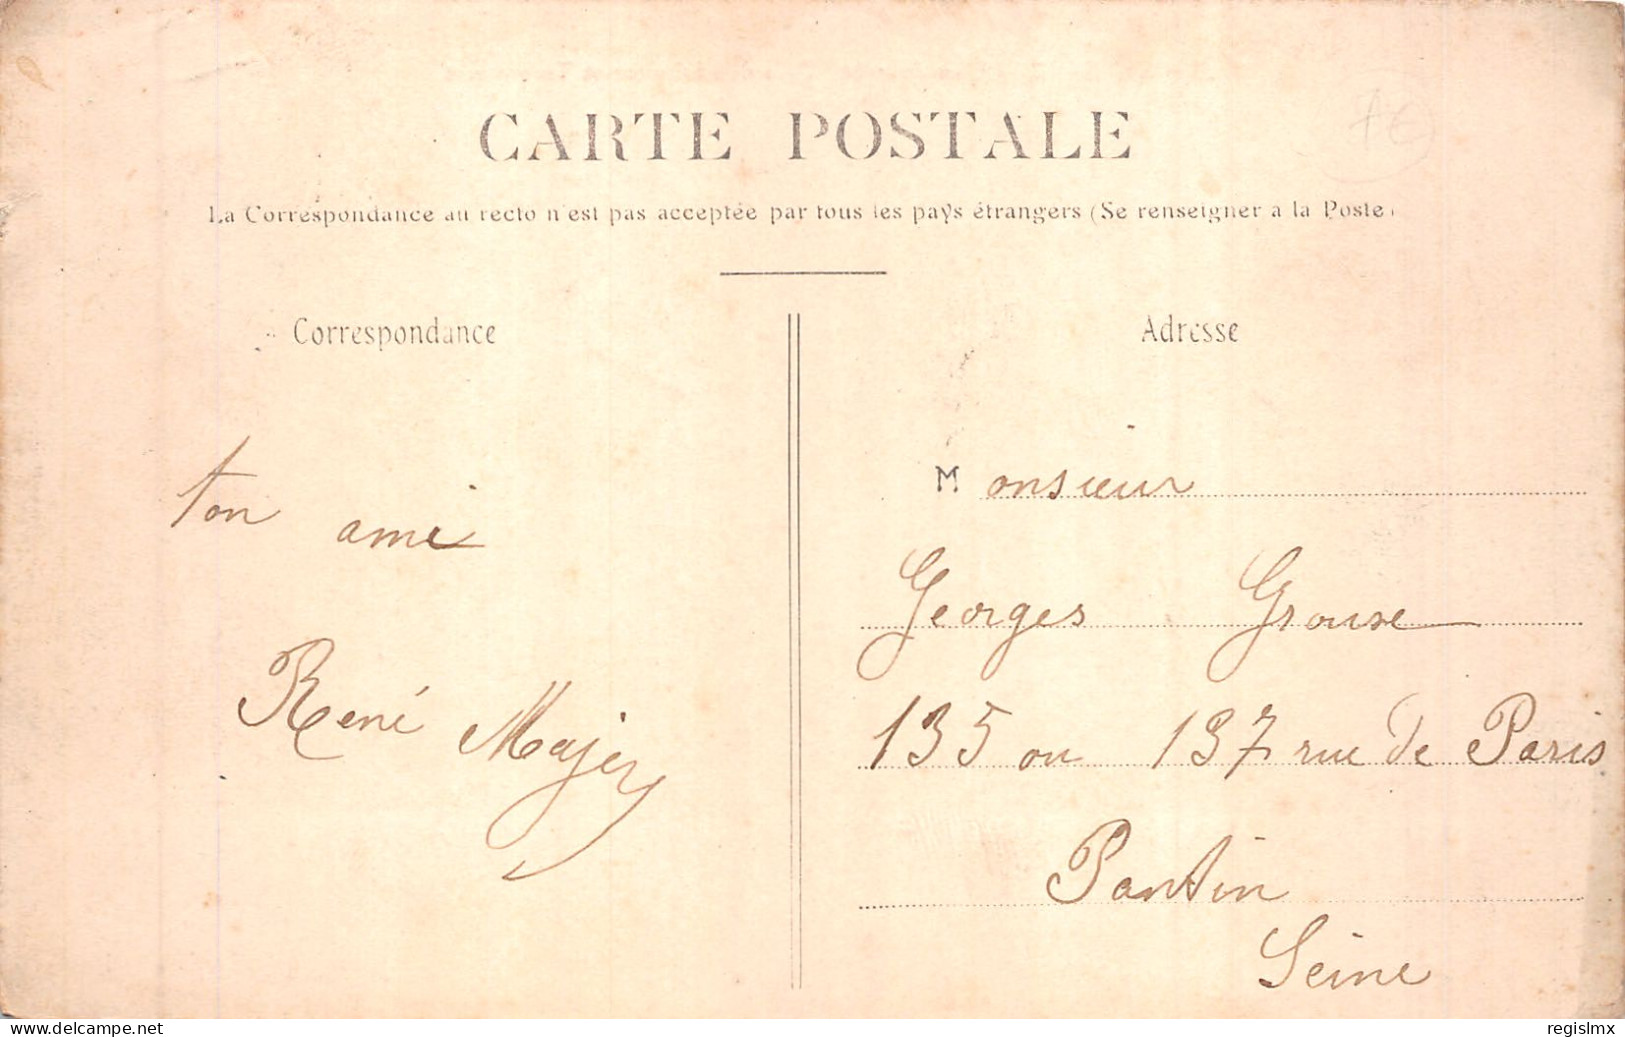 CARTE POSTALE
La Correspondance au recto n'est pas acceptée par tous les pays étrangers (Se renseigner a la Poste)
Correspondance
ton ami
René Majery
Adresse
Monsieur
Georges Grouse
135 ou 137 rue de Paris
Pantin
Seine
delcampe.net
regislmx